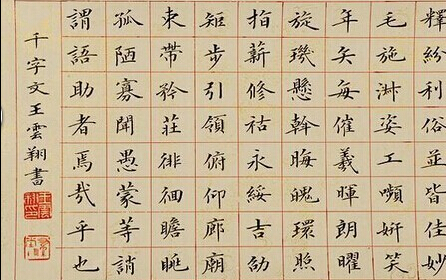 釋紛利俗並皆佳妙
毛施淑姿工嚬妍笑
年矢每催羲暉朗曜
旋璣懸斡晦魄環照
指薪修祜永綏吉劭
矩步引領俯仰廊廟
束帶矜莊徘徊瞻眺
孤陋寡聞愚蒙等誚
謂語助者焉哉乎也
千字文王雲翔書